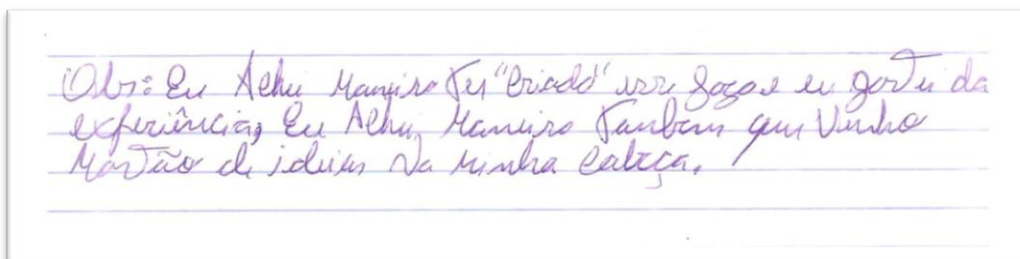 Obs: Eu Achei Maneiro Ter "Criado" um Jogo e eu gostei da
experiência, Eu Achei Maneiro Tanbem que Vinho
Montão de ideias Na Minha Cabeça.